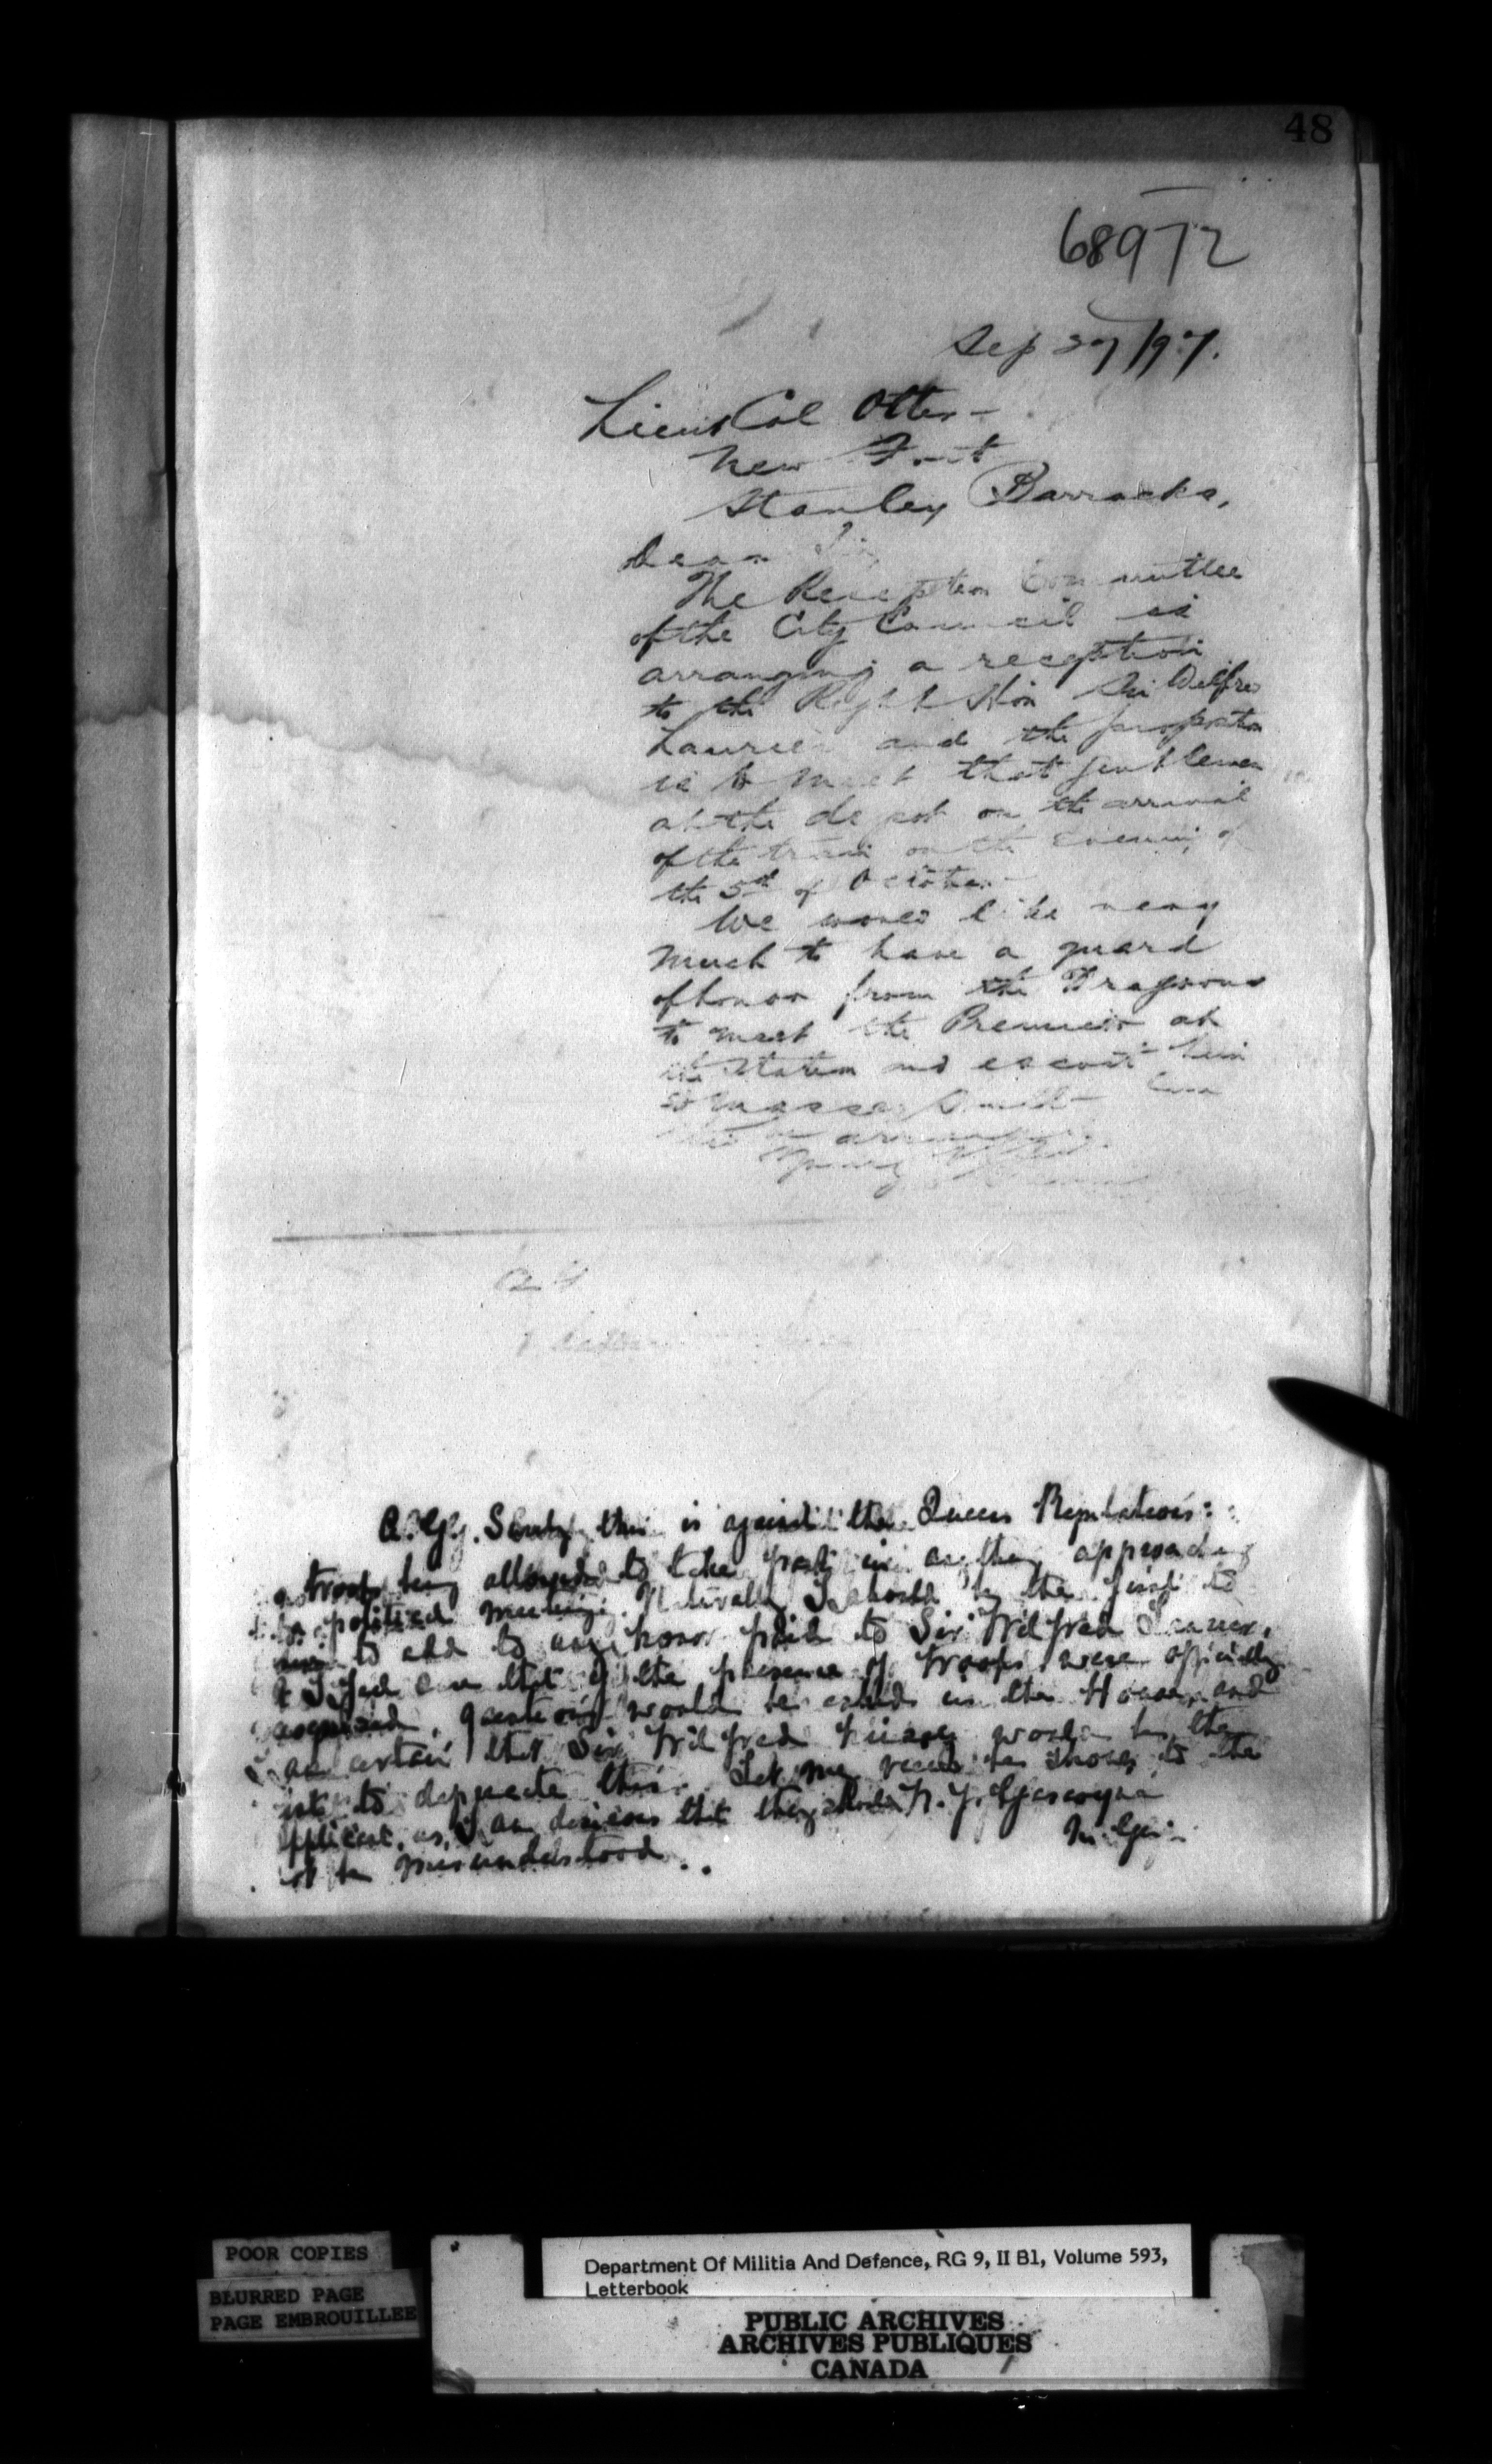 48
68972
Sep 27/97.
Lieut Col Otter -
New Fort
Stanley Barracks,
Dear Sir
The Reception Committee
of the City Council is
arranging a reception
to the Right Hon Sir Wilfred
Laurier and the proposition
is to meet that gentleman
at the depot on the arrival
of the train on the evening of
the 5th of October -
We would like very
much to have a guard
of honor from the Dragoons
to meet the Premier at
the Station and escort him
to Massey
Yours
A.G. Surely this is against the Queens Regulations:
troops being allowed to take part in anything approaching
to a political meeting. Naturally I should be the first to
to add to any honor paid to Sir Wilfred Laurier,
I feel sure that if the presence of troops were officially
questions would be asked in the House, and
certain that Sir Wilfred himself would be the
to deprecate this. Let my views be shown to the
applicant, as I am desirous that they should
not be misunderstood.
Gascoigne
M. Gen.
POOR COPIES
BLURRED PAGE
PAGE EMBROUILLEE
Department Of Militia And Defence, RG 9, II B1, Volume 593,
Letterbook
PUBLIC ARCHIVES
ARCHIVES PUBLIQUES
CANADA